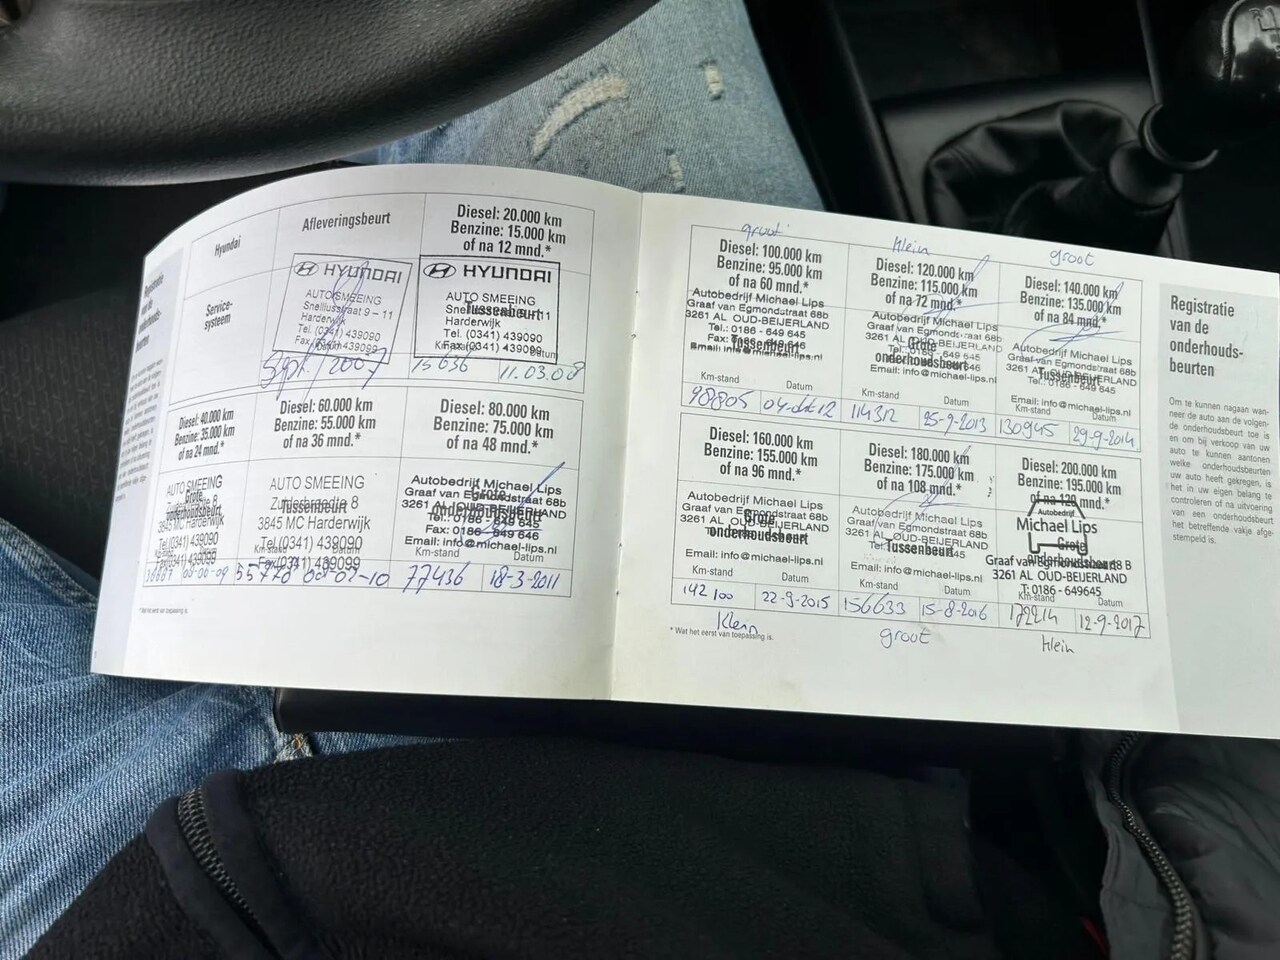 Hyundai
Service-
systeem
Afleveringsbeurt
HYUNDAI
AUTO SMEEING
Snelliusstraat 9 - 11
Harderwijk
Tel. (0341) 439090
Fax (0341) 439099
Sept. 2007
Diesel: 20.000 km
Benzine: 15.000 km
of na 12 mnd.*
HYUNDAI
AUTO SMEEING
Tussenbeurt
Harderwijk
Tel. (0341) 439090
Fax (0341) 439099
15636
11.03.08
Diesel: 40.000 km
Benzine: 35.000 km
of na 24 mnd.*
AUTO SMEEING
Grote
onderhoudsbeurt
3845 MC Harderwijk
Tel (0341) 439090
Fax (0341) 439099
Diesel: 60.000 km
Benzine: 55.000 km
of na 36 mnd.*
AUTO SMEEING
Tussenbeurt
3845 MC Harderwijk
Tel (0341) 439090
Fax (0341) 439099
55770
Diesel: 80.000 km
Benzine: 75.000 km
of na 48 mnd.*
Autobedrijf Michael Lips
Grote
Graaf van Egmondstraat 68b
onderhoudsbeurt
3261 AL OUD-BEIJERLAND
Tel.: 0186 - 649 645
Fax: 0186 - 649 646
Email: info@michael-lips.nl
Km-stand Datum
77436 18-3-2011
groot
Diesel: 100.000 km
Benzine: 95.000 km
of na 60 mnd.*
Autobedrijf Michael Lips
Graaf van Egmondstraat 68b
3261 AL OUD-BEIJERLAND
Tel.: 0186 - 649 645
Tussenbeurt
Email: info@michael-lips.nl
Km-stand Datum
98805 04-okt 12
klein
Diesel: 120.000 km
Benzine: 115.000 km
of na 72 mnd.*
Autobedrijf Michael Lips
Graaf van Egmondstraat 68b
3261 AL OUD-BEIJERLAND
Grote
onderhoudsbeurt
Email: info@michael-lips.nl
Km-stand Datum
114312 25-9-2013
groot
Diesel: 140.000 km
Benzine: 135.000 km
of na 84 mnd.*
Autobedrijf Michael Lips
Graaf van Egmondstraat 68b
3261 AL OUD-BEIJERLAND
Tussenbeurt
Tel.: 0186 - 649 645
Email: info@michael-lips.nl
Km-stand Datum
130945 29-9-2014
Diesel: 160.000 km
Benzine: 155.000 km
of na 96 mnd.*
Autobedrijf Michael Lips
Graaf van Egmondstraat 68b
3261 AL OUD-BEIJERLAND
Grote
onderhoudsbeurt
Email: info@michael-lips.nl
Km-stand Datum
142100 22-9-2015
Klein
Diesel: 180.000 km
Benzine: 175.000 km
of na 108 mnd.*
Autobedrijf Michael Lips
Graaf van Egmondstraat 68b
3261 AL OUD-BEIJERLAND
Tussenbeurt
Email: info@michael-lips.nl
Km-stand Datum
156633 15-8-2016
groot
Diesel: 200.000 km
Benzine: 195.000 km
of na 120 mnd.*
Autobedrijf
Michael Lips
Grote
onderhoudsbeurt
3261 AL OUD-BEIJERLAND
T: 0186 - 649645
Km-stand Datum
172214 12-9-2017
klein
* Wat het eerst van toepassing is.
Registratie
van de
onderhouds-
beurten
Om te kunnen nagaan wan-
neer de auto aan de volgen-
de onderhoudsbeurt toe is
en om bij verkoop van uw
auto te kunnen aantonen
welke onderhoudsbeurten
uw auto heeft gekregen, is
het in uw eigen belang te
controleren of na uitvoering
van een onderhoudsbeurt
het betreffende vakje afge-
stempeld is.